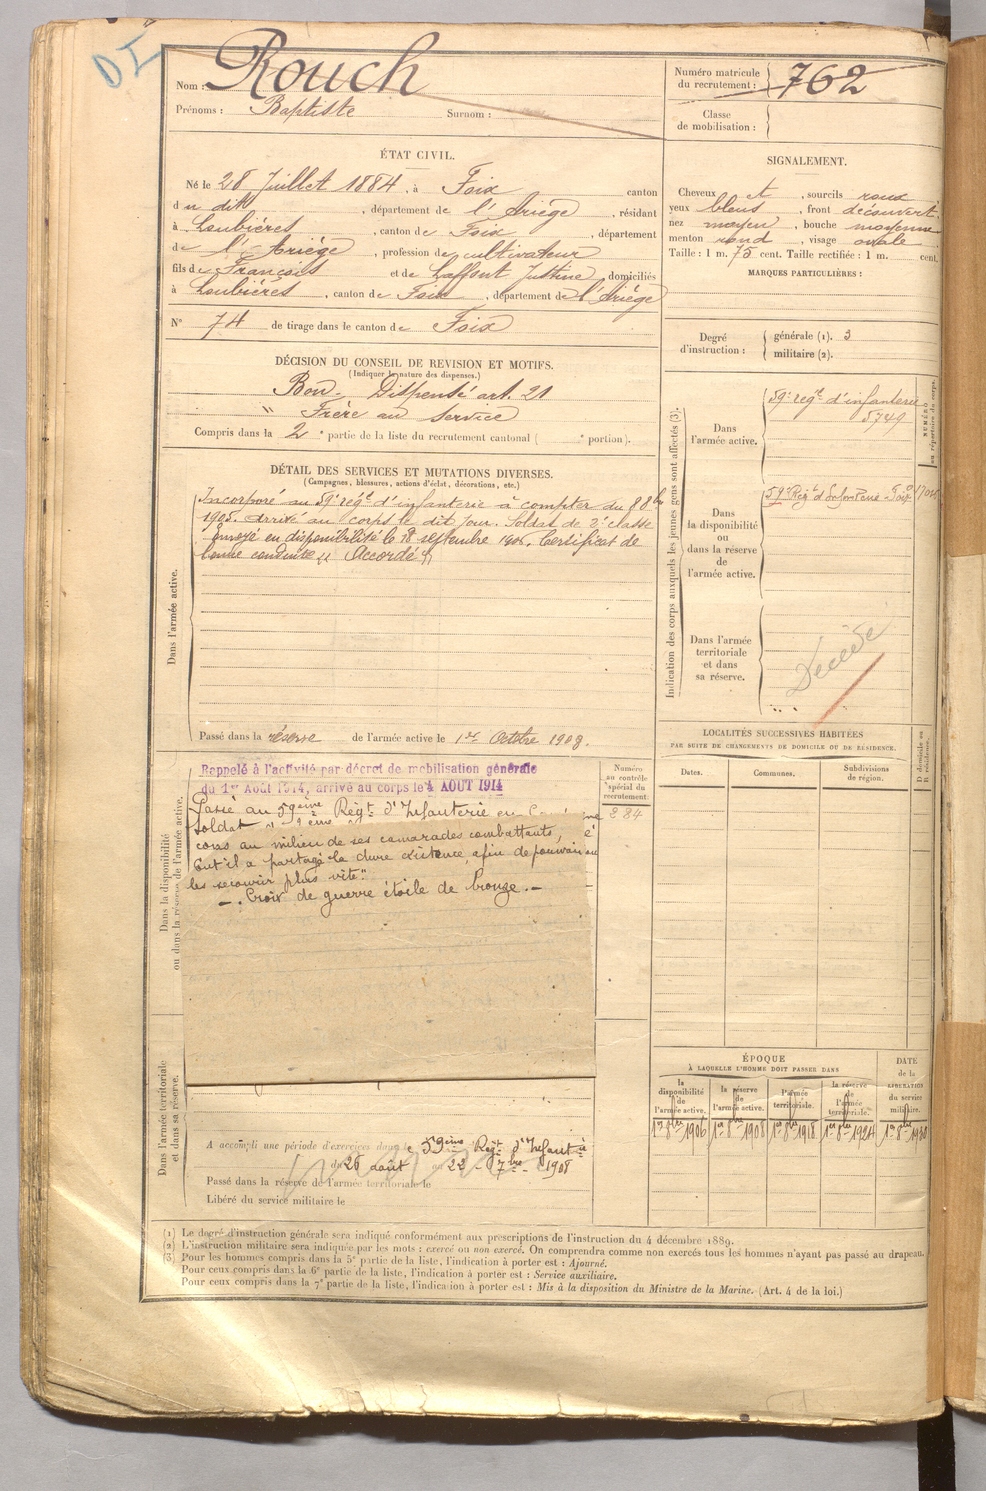 DI
Nom : Rouch
Prénoms : Baptiste Surnom :
Numéro matricule du recrutement : 762
Classe de mobilisation :
ÉTAT CIVIL.
Né le 28 Juillet 1884, à Foix canton
du dit, département de l'Ariège, résidant
à Loubières, canton de Foix, département
de l'Ariège, profession de cultivateur
fils de François et de Laffont Justine, domiciliés
à Loubières, canton de Foix, département de l'Ariège
N° 74 de tirage dans le canton de Foix
SIGNALEMENT.
Cheveux et, sourcils roux
yeux bleus, front découvert
nez moyen, bouche moyenne
menton rond, visage ovale
Taille : 1 m. 75 cent. Taille rectifiée : 1 m. cent.
MARQUES PARTICULIÈRES :
Degré d'instruction : générale (1). 3
militaire (2).
DÉCISION DU CONSEIL DE REVISION ET MOTIFS.
(Indiquer la nature des dispenses.)
Bon. Dispensé art. 21
" Frère au service
Compris dans la 2e partie de la liste du recrutement cantonal ( e portion).
DÉTAIL DES SERVICES ET MUTATIONS DIVERSES.
(Campagnes, blessures, actions d'éclat, décorations, etc.)
Dans l'armée active.
Incorporé au 59e régt d'infanterie à compter du 8 8bre
1905. Arrivé au corps le dit jour. Soldat de 2e classe
Envoyé en disponibilité le 18 septembre 1906. Certificat de
bonne conduite "Accordé"
Passé dans la réserve de l'armée active le 1er Octobre 1908.
Indication des corps auxquels les jeunes gens sont affectés (3).
NUMÉRO au répertoire du corps.
Dans l'armée active.
59e régt d'infanterie
5749
Dans la disponibilité ou dans la réserve de l'armée active.
59e Régt d'Infanterie Foix
Dans l'armée territoriale et dans sa réserve.
Décédé
Dans la disponibilité ou dans la réserve de l'armée active.
Rappelé à l'activité par décret de mobilisation générale
du 1er Août 1914, arrivé au corps le 4 AOUT 1914
Passé au 59ème Régt d'Infanterie en
Soldat de 2ème
cons au milieu de ses camarades combattants,
dont il a partagé la dure existence afin de pouvoir
les secourir plus vite".
-. Croix de guerre étoile de bronze.-
Numéro au contrôle spécial du recrutement
284
LOCALITÉS SUCCESSIVES HABITÉES
PAR SUITE DE CHANGEMENTS DE DOMICILE OU DE RÉSIDENCE.
Dates. Communes. Subdivisions de région. D domicile ou R résidence.
ÉPOQUE
À LAQUELLE L'HOMME DOIT PASSER DANS
la disponibilité de l'armée active. la réserve de l'armée active. l'armée territoriale. la réserve de l'armée territoriale.
DATE de la LIBÉRATION du service militaire.
1er 8bre 1906 1er 8bre 1908 1er 8bre 1918 1er 8bre 1924 1er 8bre 1930
Dans l'armée territoriale et dans sa réserve.
A accompli une période d'exercices dans le 59ème Régt d'Infanterie
du 26 août au 22 7bre 1908
Passé dans la réserve de l'armée territoriale le
Libéré du service militaire le
(1) Le degré d'instruction générale sera indiqué conformément aux prescriptions de l'instruction du 4 décembre 1889.
(2) L'instruction militaire sera indiquée par les mots : exercé ou non exercé. On comprendra comme non exercés tous les hommes n'ayant pas passé au drapeau.
(3) Pour les hommes compris dans la 5e partie de la liste, l'indication à porter est : Ajourné.
Pour ceux compris dans la 6e partie de la liste, l'indication à porter est : Service auxiliaire.
Pour ceux compris dans la 7e partie de la liste, l'indication à porter est : Mis à la disposition du Ministre de la Marine. (Art. 4 de la loi.)